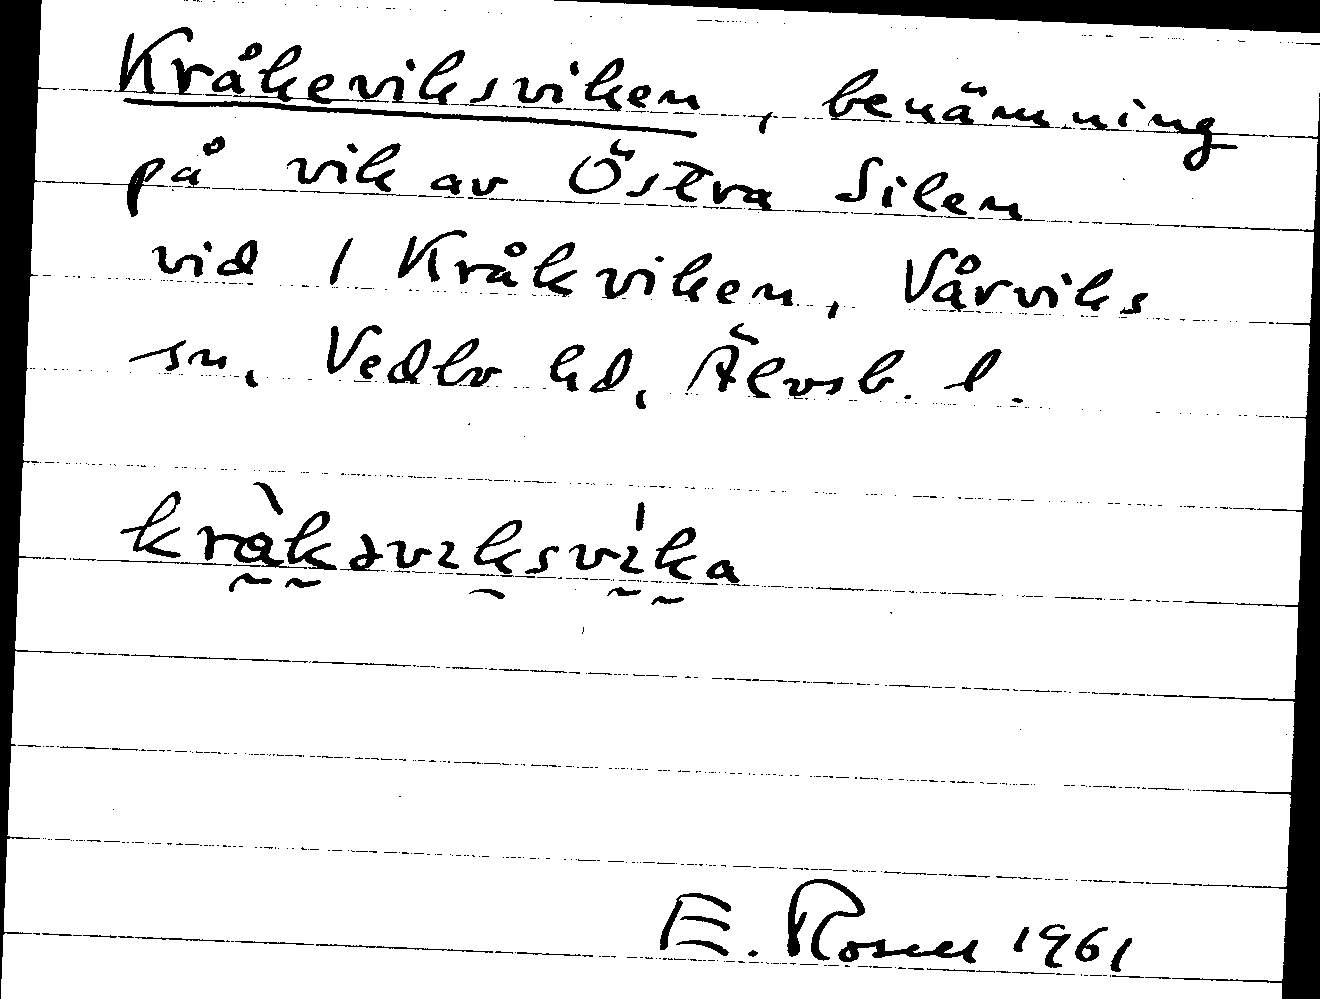 Kråkeviksviken, benämning
på vik av Östra Silen
vid 1 Kråkviken, Vårviks
sn, Vedbo hd, Älvsb. l.
kràkəviksvi'ka
E. Rosen 1961